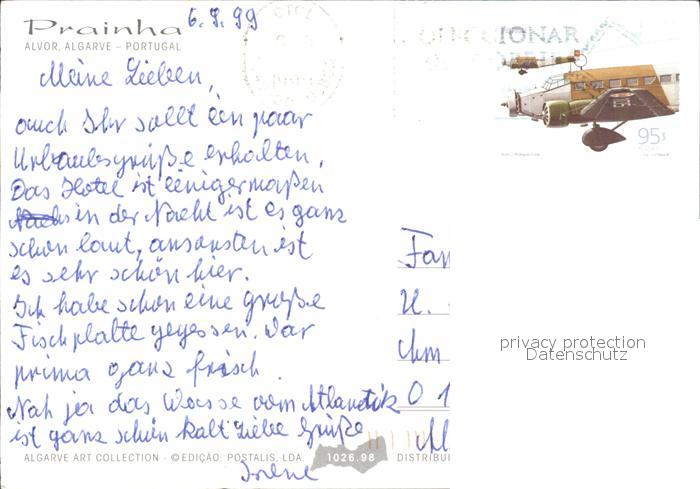 Prainha
6.9.99
ALVOR, ALGARVE – PORTUGAL
Meine Lieben,
auch Ihr sollt ein paar
Urlaubsgrüße erhalten,
Das Hotel ist einigermaßen
in der Nacht ist es ganz
schon laut, ansonsten ist
es sehr schön hier.
Ich habe schon eine große
Fischplatte gegessen. War
prima ganz frisch.
Nah ja das Wasse vom Atlantik
ist ganz schön kalt Liebe Grüße
Irene
95$
Fam
U.
privacy protection
Datenschutz
ALGARVE ART COLLECTION · © EDIÇÃO: POSTALIS, LDA. 1026.98 DISTRIBUI